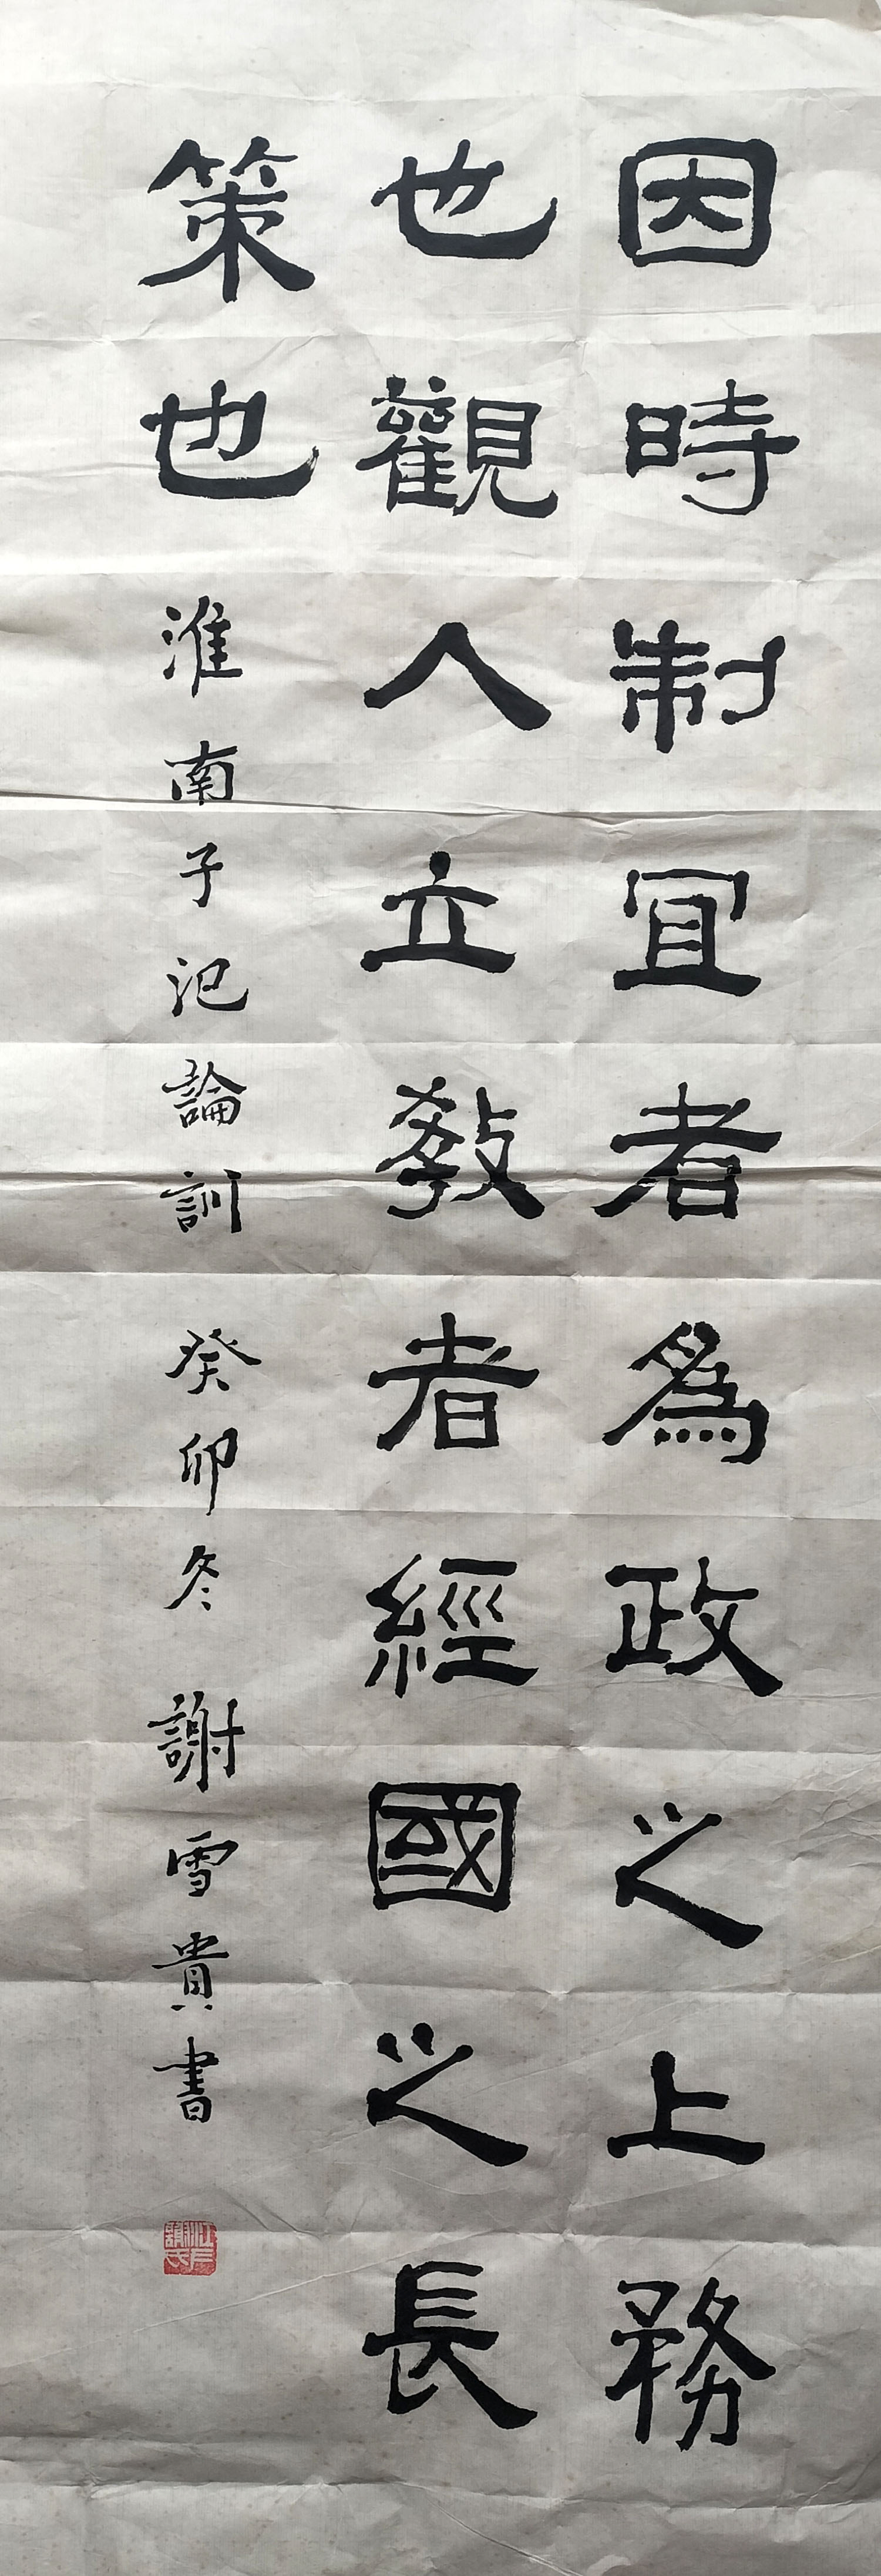 因時制宜者為政之上務
也觀人立教者經國之長
策也 淮南子氾論訓 癸卯冬 謝雪貴書